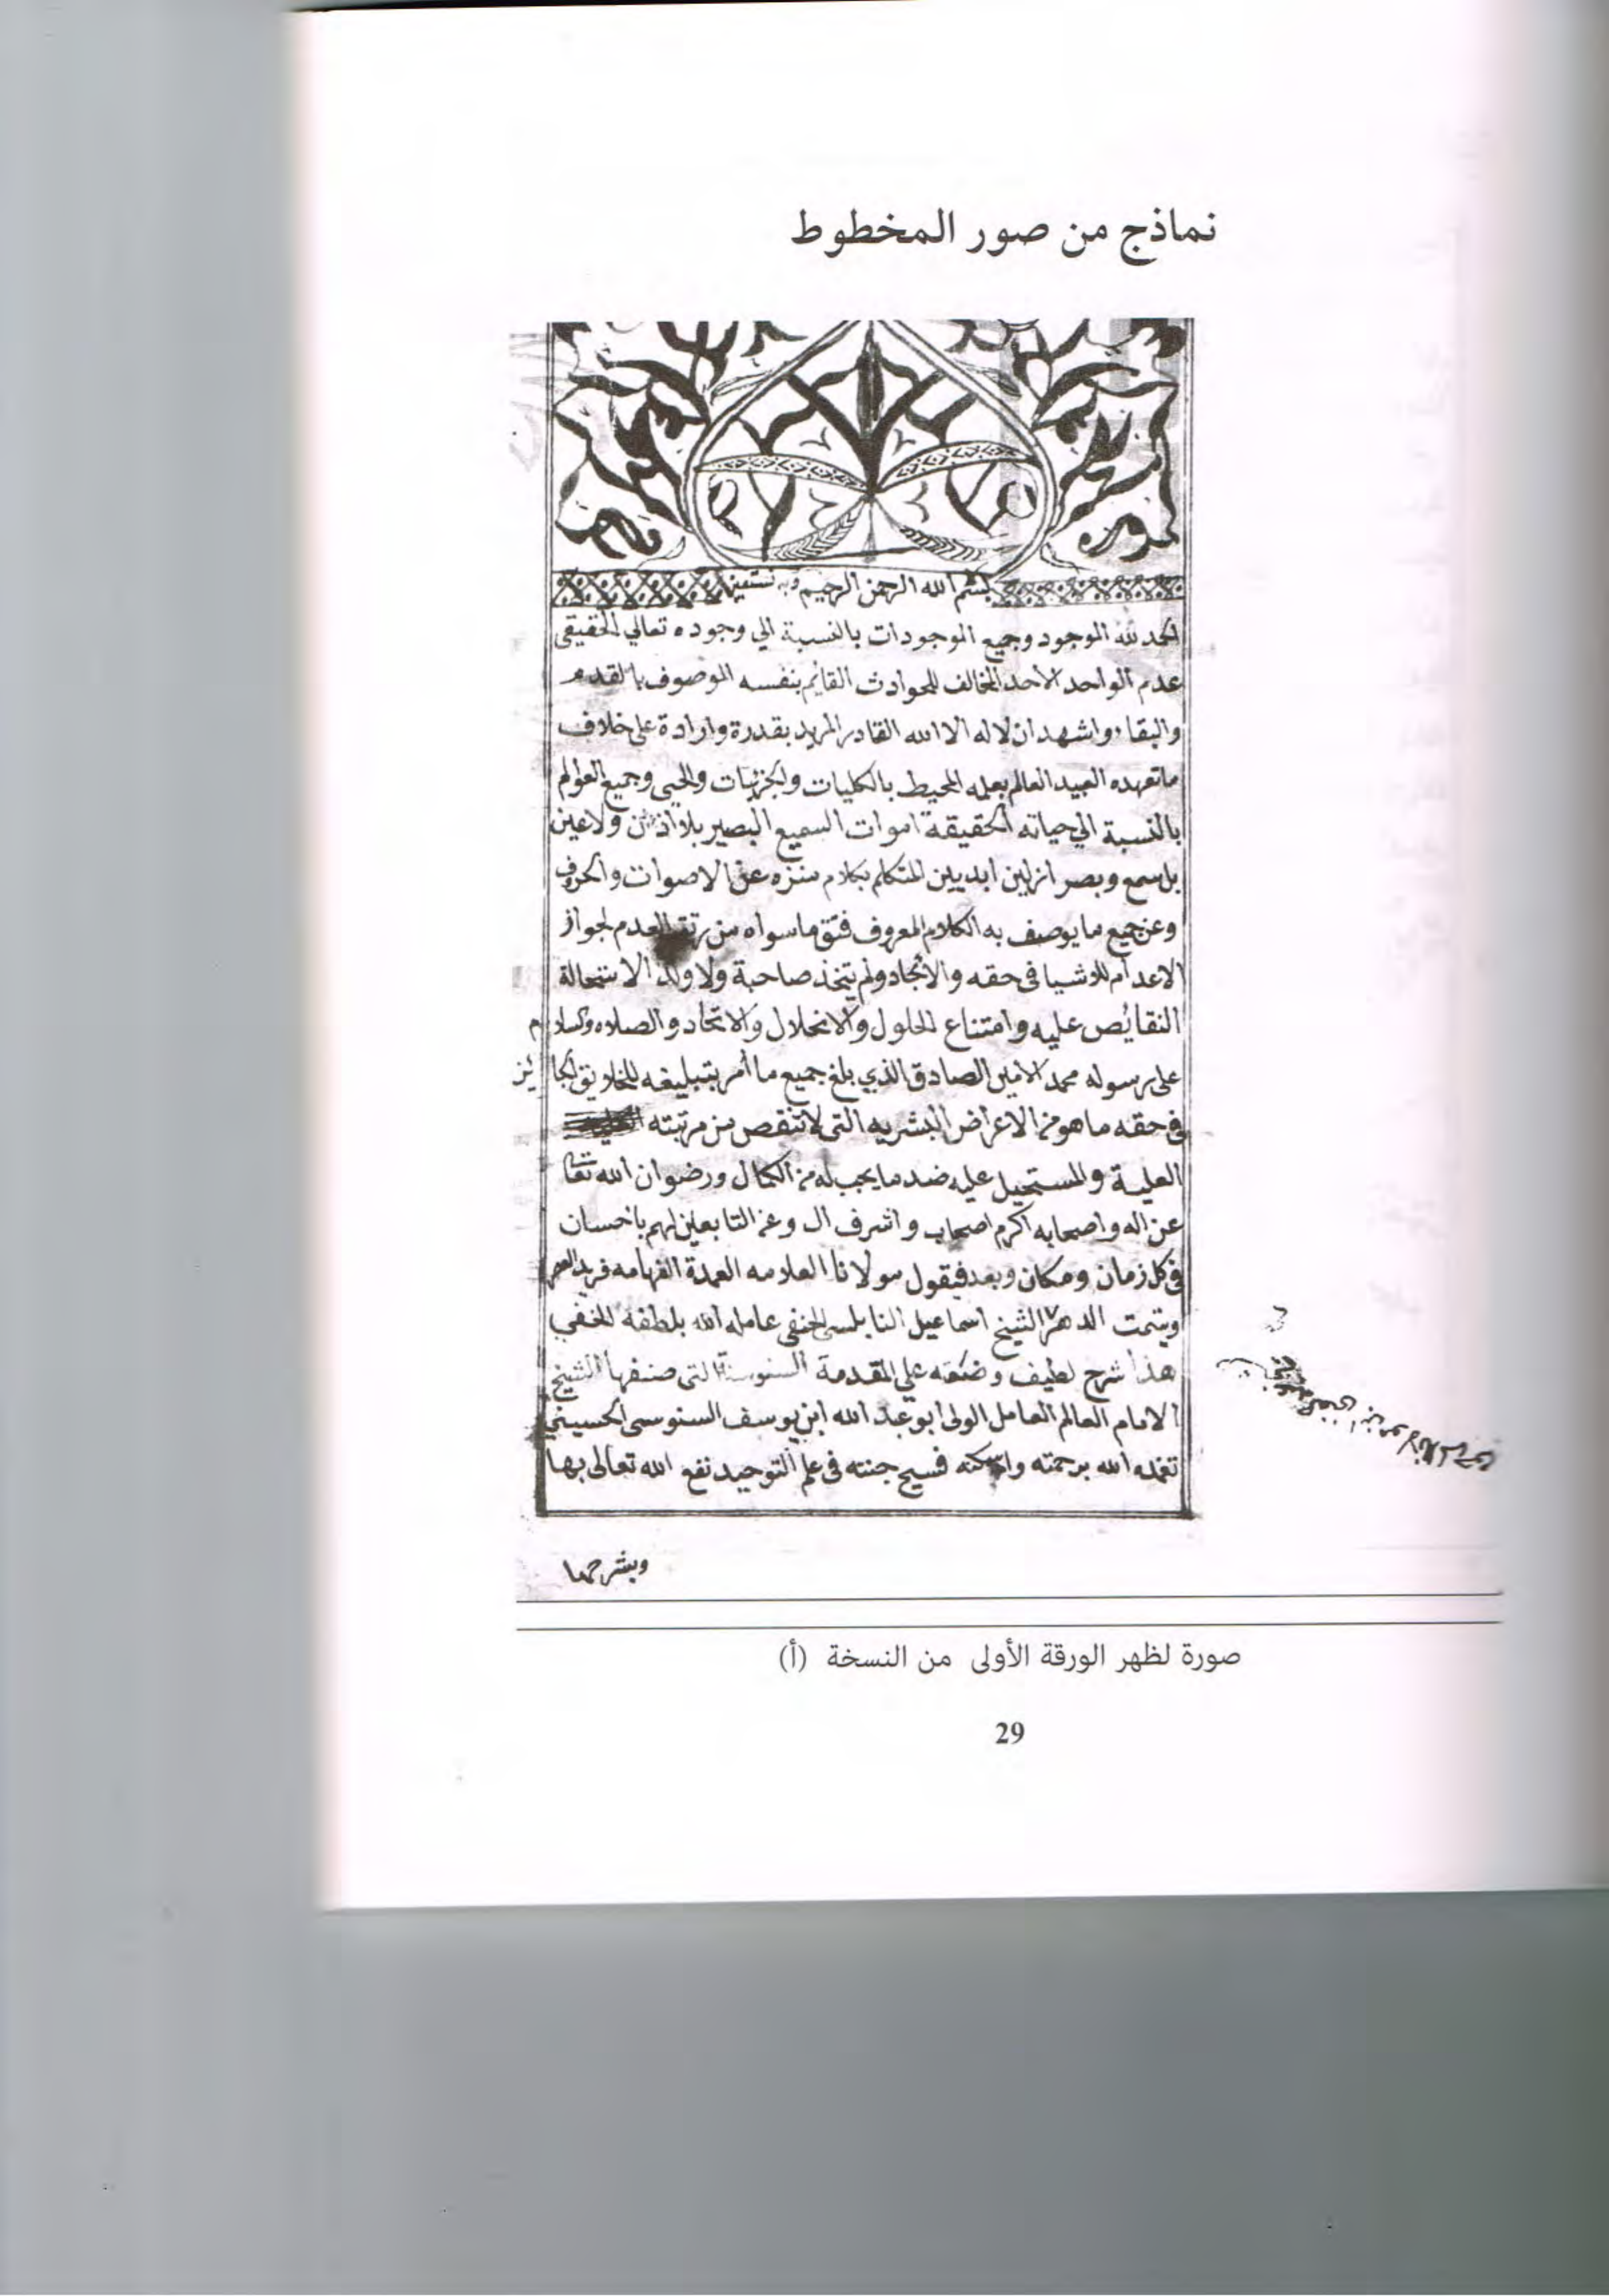 نماذج من صور المخطوط
بسم الله الرحمن الرحيم وبه نستعين
الحمد لله الموجود وجميع الموجودات بالنسبة الي وجوده تعالي الحقيقي
عدم الواحد الأحد المخالف للحوادث القائم بنفسه الموصوف بالقدم
والبقاء واشهد ان لااله الا الله القادر المريد بقدرة وارادة على خلاف
ما تعهده العبيد العالم بعلمه المحيط بالكليات والجزئيات والحي وجميع العوالم
بالنسبة الي حياته الحقيقة اموات السميع البصير بلا اذن ولا عين
بل سمع وبصر ازليين ابديين المتكلم بكلام منزه عن الاصوات والحروف
وعن جميع ما يوصف به الكلام المعروف فتق ما سواه من رتق العدم لجواز
الاعدام للاشيا في حقه والايجاد ولم يتخذ صاحبة ولا ولدا لاستحالة
النقائص عليه وامتناع الحلول والانحلال والاتحاد والصلاه والسلام
على رسوله محمد الامين الصادق الذي بلغ جميع ما أمر بتبليغه للخلايق الجائز
في حقه ما هو من الاعراض البشريه التي لا تنقص من مرتبته
العلية والمستحيل عليه ضد ما يجب له من الكمال ورضوان الله تعا
عن اله واصحابه اكرم اصحاب واشرف ال وعن التابعين لهم باحسان
في كل زمان ومكان وبعد فيقول مولانا العلامه العمدة الفهامه فريد العصر
ويتمت الدهر الشيخ اسماعيل النابلسي الحنفي عامله الله بلطفه الخفي
هذا شرح لطيف وضعته علي المقدمة السنوسية التي صنفها الشيخ
الامام العالم العامل الولي ابو عبد الله ابن يوسف السنوسي الحسيني
تغمده الله برحمته واسكنه فسيح جنته في علم التوحيد نفع الله تعالى بها
وبشرحها
صورة لظهر الورقة الأولى من النسخة (أ)
29